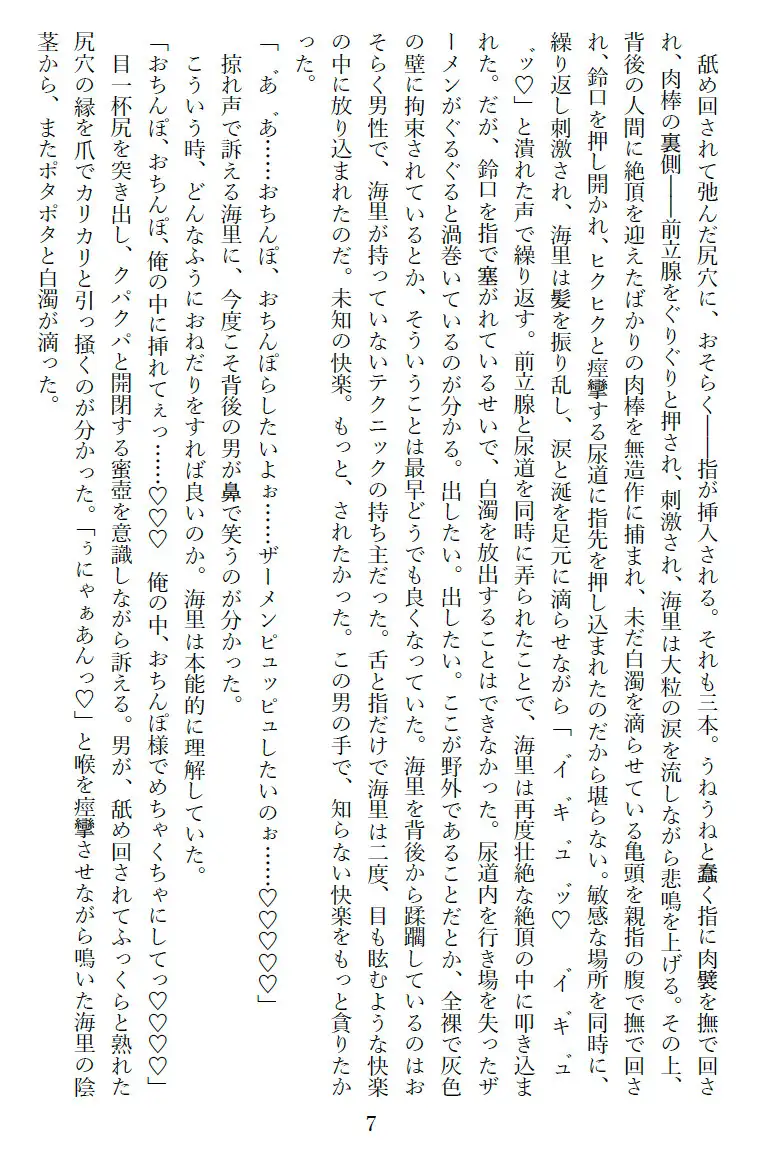 舐め回されて弛んだ尻穴に、おそらく――指が挿入される。それも三本。うねうねと蠢く指に肉襞を撫で回さ
れ、肉棒の裏側――前立腺をぐりぐりと押され、刺激され、海里は大粒の涙を流しながら悲鳴を上げる。その上、
背後の人間に絶頂を迎えたばかりの肉棒を無造作に捕まれ、未だ白濁を滴らせている亀頭を親指の腹で撫で回さ
れ、鈴口を押し開かれ、ヒクヒクと痙攣する尿道に指先を押し込まれたのだから堪らない。敏感な場所を同時に、
繰り返し刺激され、海里は髪を振り乱し、涙と涎を足元に滴らせながら「イ゛ギュ゛ッ♡　イ゛ギュ
゛ッ♡」と潰れた声で繰り返す。前立腺と尿道を同時に弄られたことで、海里は再度壮絶な絶頂の中に叩き込ま
れた。だが、鈴口を指で塞がれているせいで、白濁を放出することはできなかった。尿道内を行き場を失ったザ
ーメンがぐるぐると渦巻いているのが分かる。出したい。出したい。ここが野外であることだとか、全裸で灰色
の壁に拘束されているとか、そういうことは最早どうでも良くなっていた。海里を背後から蹂躙しているのはお
そらく男性で、海里が持っていないテクニックの持ち主だった。舌と指だけで海里は二度、目も眩むような快楽
の中に放り込まれたのだ。未知の快楽。もっと、されたかった。この男の手で、知らない快楽をもっと貪りたか
った。
「あ゛、あ゛……おちんぽ、おちんぽらしたいよぉ……ザーメンピュッピュしたいのぉ……♡♡♡♡♡」
掠れ声で訴える海里に、今度こそ背後の男が鼻で笑うのが分かった。
こういう時、どんなふうにおねだりをすれば良いのか。海里は本能的に理解していた。
「おちんぽ、おちんぽ、俺の中に挿れてぇっ……♡♡♡　俺の中、おちんぽ様でめちゃくちゃにしてっ♡♡♡♡」
目一杯尻を突き出し、クパクパと開閉する蜜壺を意識しながら訴える。男が、舐め回されてふっくらと熟れた
尻穴の縁を爪でカリカリと引っ掻くのが分かった。「ぅにゃぁあんっ♡」と喉を痙攣させながら鳴いた海里の陰
茎から、またポタポタと白濁が滴った。
7